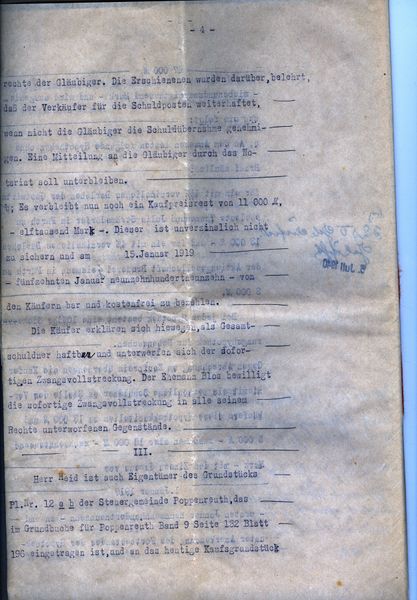 - 4 -
rechte der Gläubiger. Die Erschienenen wurden darüber, belehrt,
daß der Verkäufer für die Schuldposten weiterhaftet,
wenn nicht die Gläubiger die Schuldübernahme genehmi-
gen. Eine Mitteilung an die Gläubiger durch das No-
tariat soll unterbleiben.
Es verbleibt nun noch ein Kaufpreisrest von 11 000 M,
- elftausend Mark -. Dieser ist unverzinslich nicht
zu sichern und am 15.Januar 1919
- fünfzehnten Januar neunzehnhundertneunzehn - von
den Käufern bar und kostenfrei zu bezahlen.
Die Käufer erklären sich hiewegen, als Gesamt-
schuldner haftbar und unterwerfen sich der sofor-
tigen Zwangsvollstreckung. Der Ehemann Blos bewilligt
die sofortige Zwangsvollstreckung in alle seinem
Rechte unterworfenen Gegenstände.
III.
Herr Zeid ist auch Eigentümer des Grundstücks
Pl.Nr. 12 a b der Steuergemeinde Poppenreuth, das
im Grundbuche für Poppenreuth Band 9 Seite 132 Blatt
196 eingetragen ist, und an das heutige Kaufsgrundstück